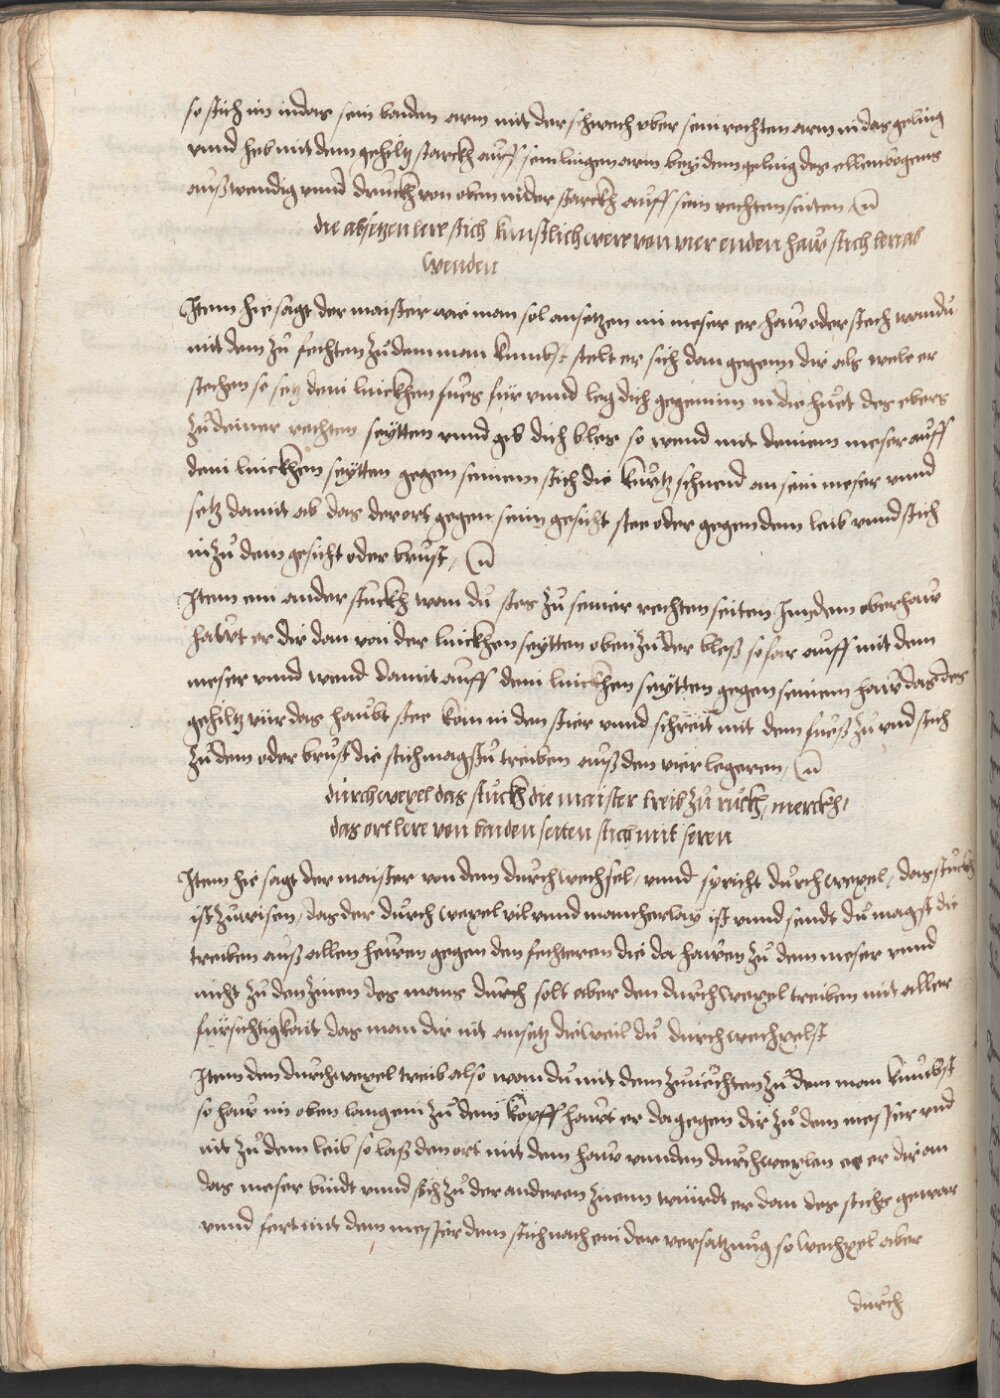 so stich im in das sein baiden arm mit der schwech vber sein rechten arm in das geling
vnnd heb mit dem gehiltz starckh auff sein lingen arm bey dem geling des ellenbogens
außwendig vnnd druckh von oben nider starckh auff sein rechten seiten
die absetzen lere stich kunstlich were von vier enden haw stich lerra
wenden
Item hie sagt der maister wie man sol ansetzen im meser er haw oder stech wan du
mit dem zu fechten zu dem man kumbst stelt er sich dan gegenn dir als wele er
stechen so setz dein linckhen fues für vnnd leg dich gegen im in die huet des ebers
zu deiner rechten seytten vnnd gib dich bles so wend mit deinem meser auff
dein linckhen seytten gegen seinem stich die kurtz schneid an sein meser vnnd
setz damit ab das der ort gegen seim gesicht stee oder gegen dem leib vnnd stich
im zu dem gesicht oder brust
Item ein ander stuckh wan du stes zu seiner rechten seiten Inn dem oberhaw
hawt er dir dan von der linckhen seytten oben zu der bleß so far auff mit dem
meser vnnd wend damit auff dein linckhen seytten gegen seinem haw das des
gehiltz vür das haubt stee kom in den stier vnnd schreit mit dem fueß zu vnd stich
zu dem oder brust die stich magstu treiben auß den vier legeren
durchwexel das stuckh die maister treib zu ruckh, merckh,
das ort lere von baiden seiten stich mit seren
Item hie sagt der maister von dem durchwechsel, vnnd spricht durchwexel, das stuckh
ist zu wisen, das der durchwexel vil vnnd mancherlay ist vnnd sendt du magst die
treiben auß allen hewen gegen den fechteren die da hawen zu dem meser vnnd
nicht zu den zinen des mans durch solt aber den durchwexel treiben mit aller
fürsichtigkait das man dir nit ansetz dieweil du durchwechxelst
Item den durchwexel treib also wan du mit dem zuuechten zu dem man kumbst
so haw im oben langeim zu dem kopff hawt er da gegen dir zu dem messer vnd
nit zu dem leib so laß den ort mit dem haw vnnden durchwexlen ee er dir an
das meser bindt vnnd stich zu der anderen zinenn wuirdt er dan des stichs gewar
vnnd fert mit dem messer dem stich nach ein der versatzung so wechxel aber
durch